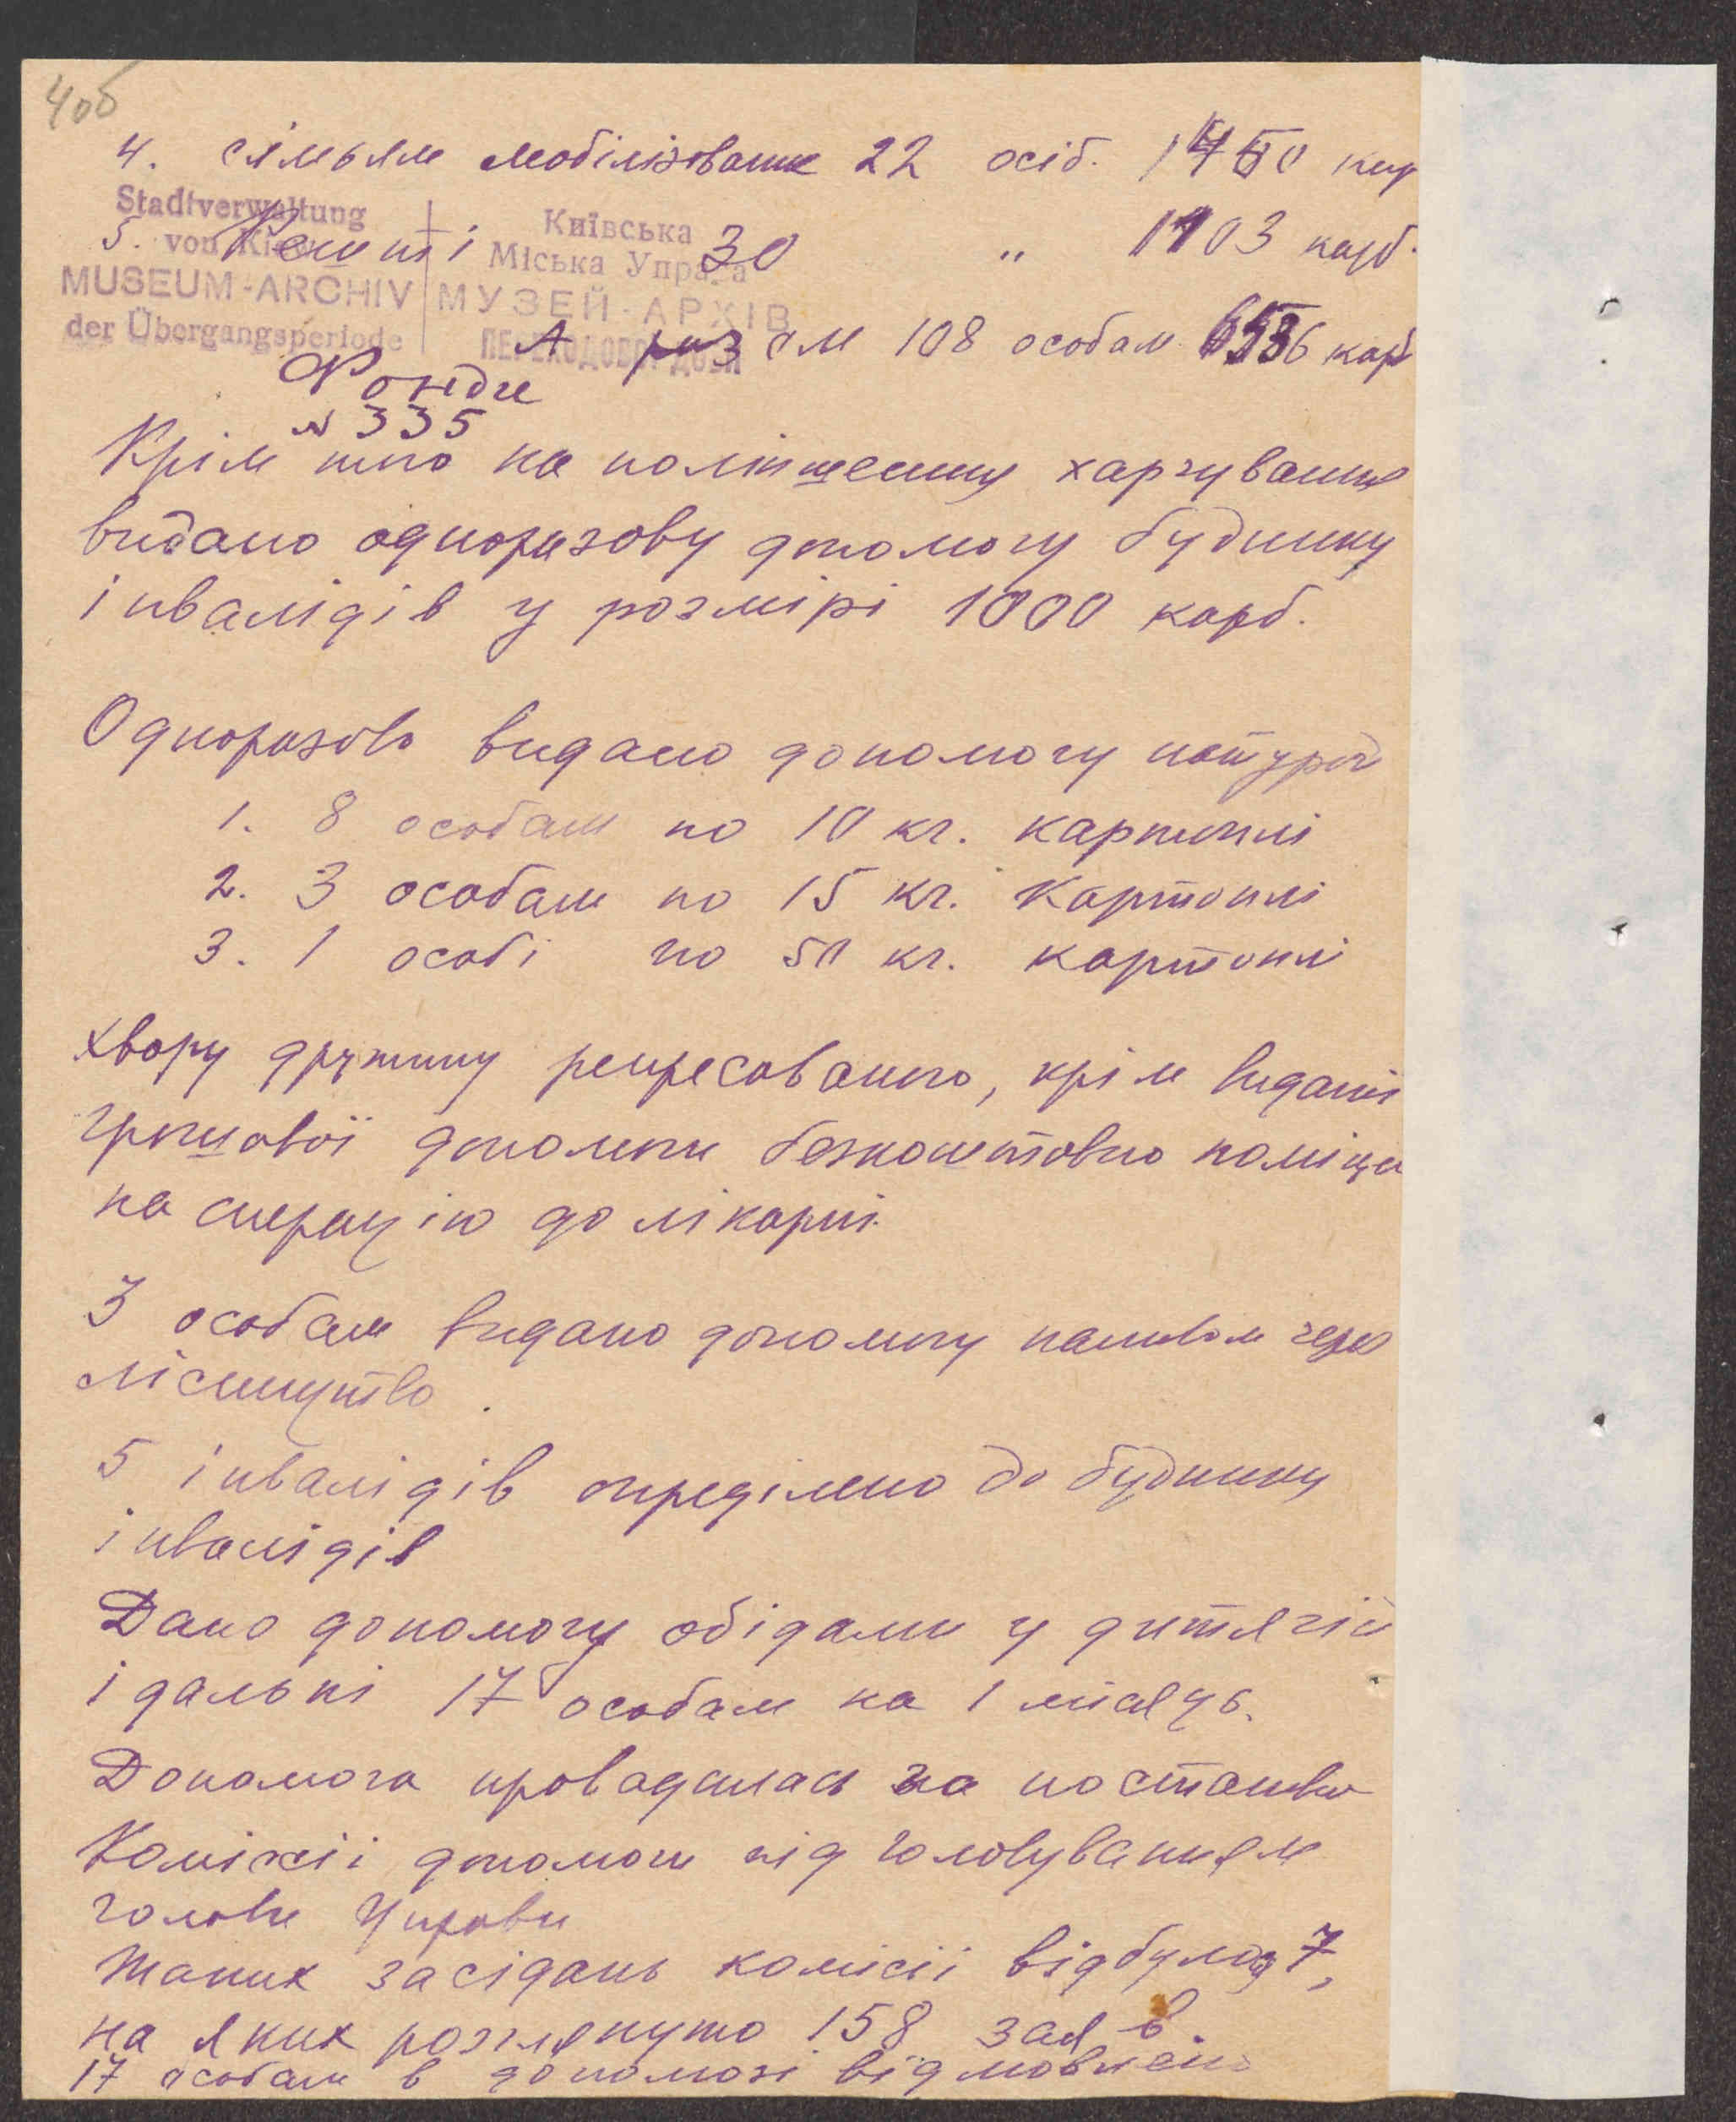 4об
4. сімьям мобілізованих 22 осіб. 1450 кар
Stadtverwaltung
von Kiew
MUSEUM-ARCHIV
der Übergangsperiode
Київська
Міська Управа
МУЗЕЙ-АРХІВ
ПЕРЕХОДОВОЇ ДОБИ
5. Решті 30 " 1103 карб.
А разом 108 особам карб
Фонд
№ 335
Крім того на поліпшенну харчування
видано одноразову допомогу будинку
інвалідів у розмірі 1000 карб.
Одноразово видано допомогу натурой
1. 8 особам по 10 кг. картоплі
2. 3 особам по 15 кг. картоплі
3. 1 особі по 50 кг. картоплі
хвору дружину репресованого, крім виданої
грошової допомоги безкоштовно поміще
на операцію до лікарні.
3 особам видано допомогу паливом через
лісництво.
5 інвалідів определено до будинку
інвалідів
Дано допомогу обідами у дитячій
їдальні 17 особам на 1 місяць.
Допомога провадилась за постанов
Комісіі допомоги під головуванням
голови Управи
таких засідань комісіі відбулось 7,
на яких розглянуто 158 заяв.
17 особам в допомозі відмовлено